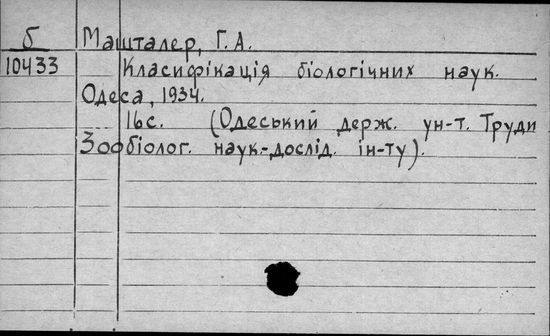 б Машталер, Г.А.
10433 Класифікація біологічних наук.
Одеса, 1934.
16с. (Одеський держ. ун-т. Труди
Зообіолог. наук.-дослід. ін-ту).